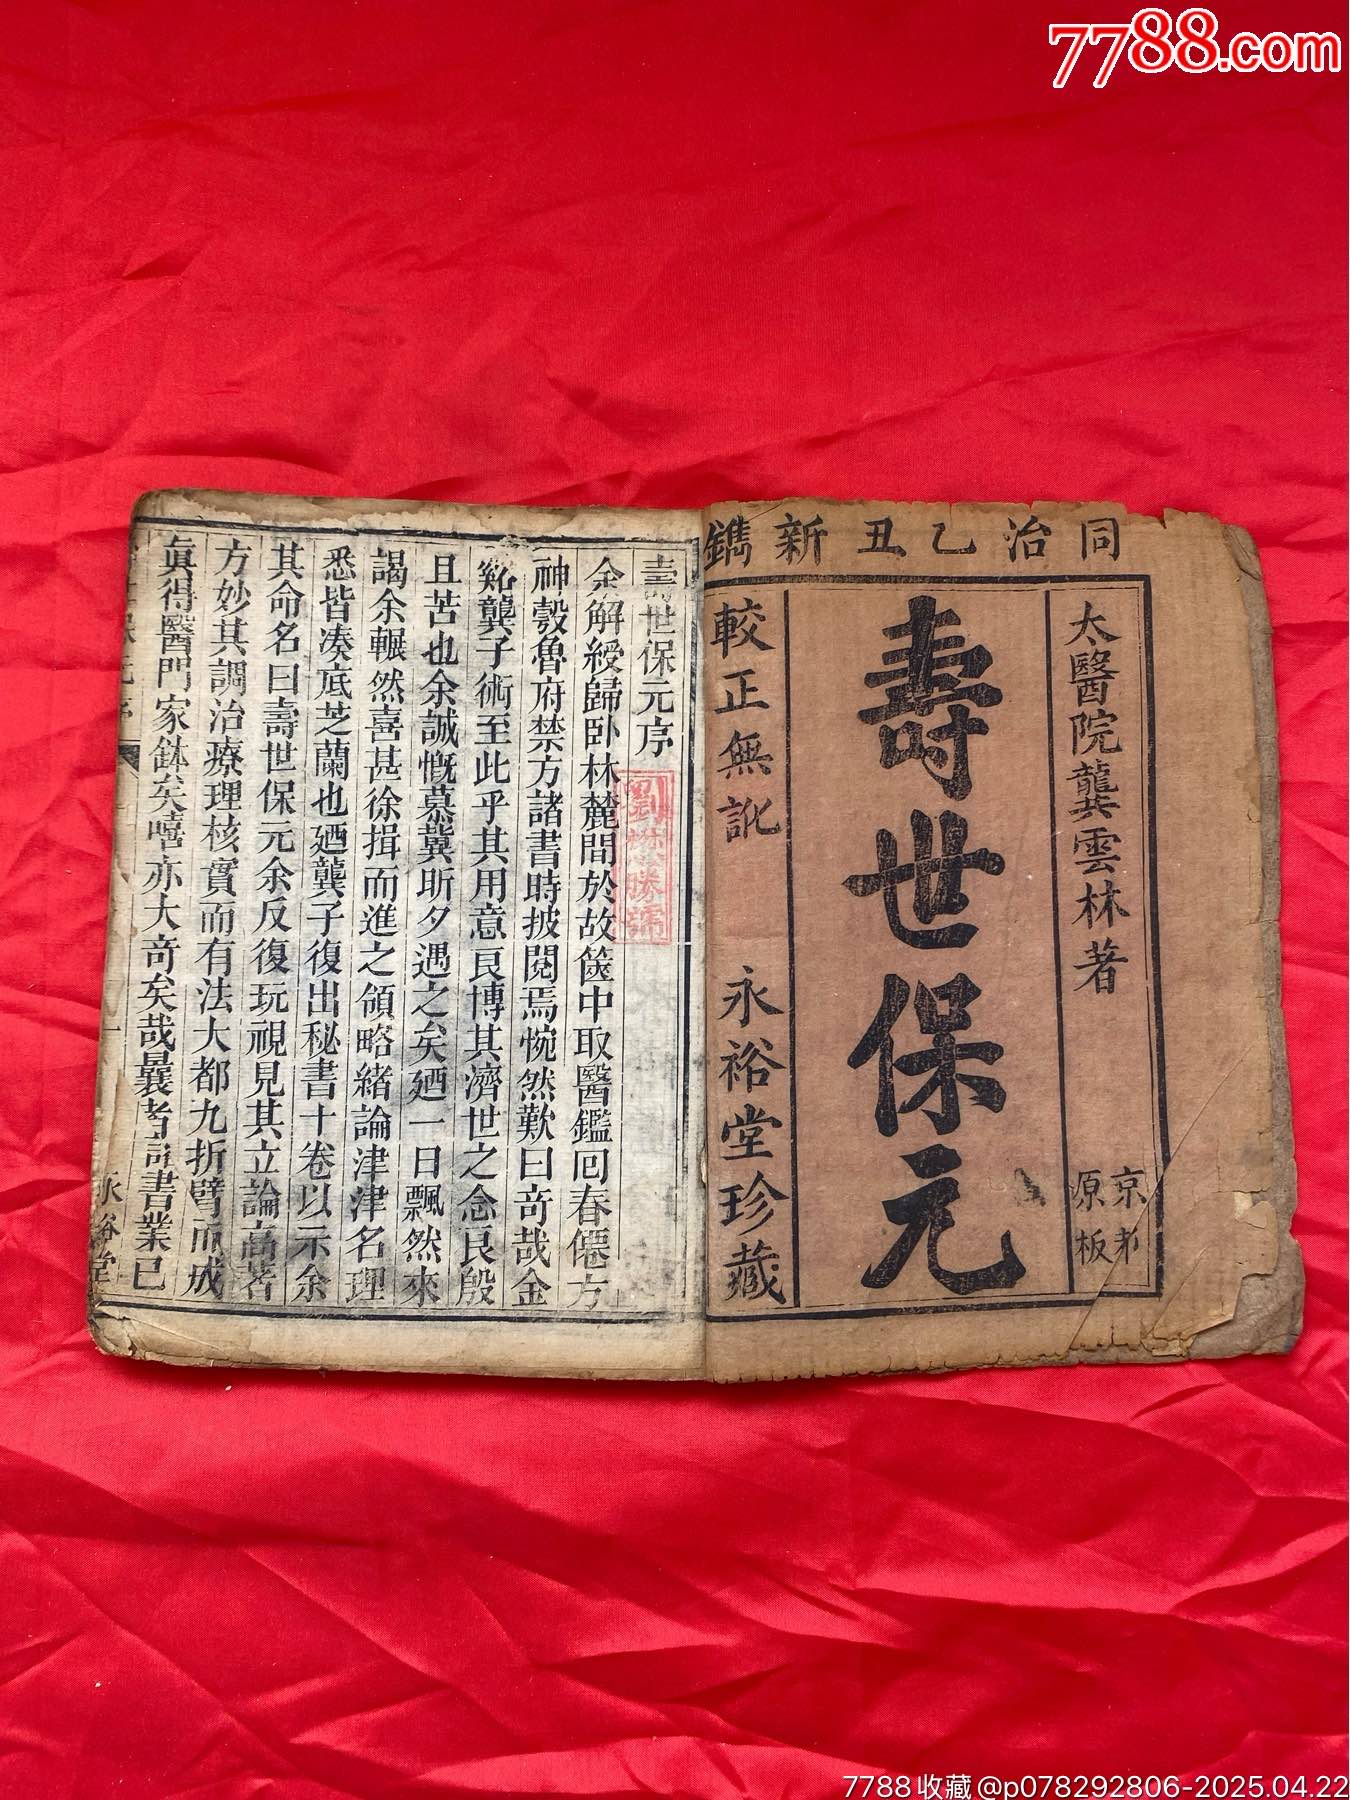 7788.com
同治乙丑新鐫
太醫院龔雲林著
京都
原板
壽世保元
較正無訛 永裕堂珍藏
壽世保元序
余解綬歸卧林麓間於故篋中取醫鑑回春僊方
神彀魯府禁方諸書時披閱焉惋然歎曰竒哉金
谿龔子術至此乎其用意良博其濟世之念良殷
且苦也余誠慨慕冀昕夕遇之矣廼一日飄然來
謁余輾然喜甚徐揖而進之領略緒論津津名理
悉皆湊底芝蘭也廼龔子復出秘書十卷以示余
其命名曰壽世保元余反復玩視見其立論高著
方妙其調治療理核實而有法大都九折臂而成
真得醫門家鉢矣嘻亦大竒矣哉曩者言書業已
保元序
一
永裕堂
7788收藏@p078292806-2025.04.22